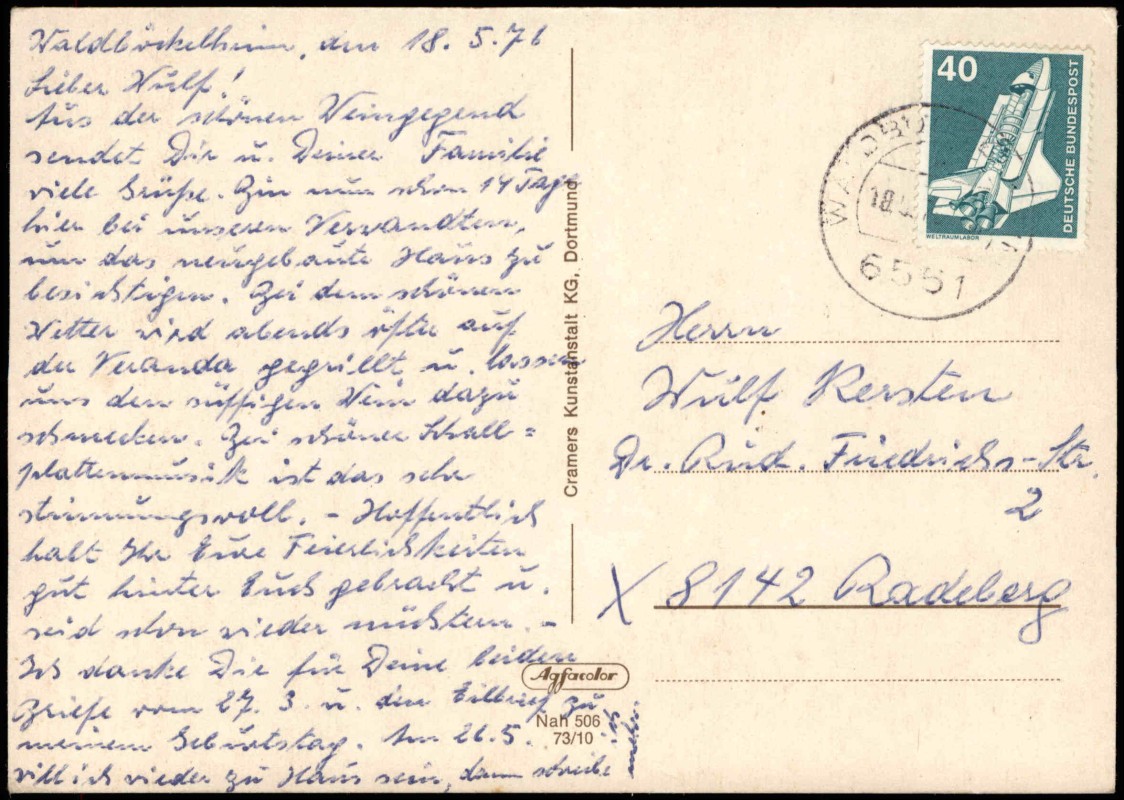 Waldböckelheim, den 18. 5. 76
Lieber Wulf!
Aus der schönen Weingegend
sendet Dir u. Deiner Familie
viele Grüße. Bin nun schon 14 Tage
hier bei unseren Verwandten,
um das neugebaute Haus zu
besichtigen. Bei dem schönen
Wetter wird abends öfter auf
der Veranda gegrillt u. lassen
uns den süffigen Wein dazu
schmecken. Bei schöner Schall=
plattenmusik ist das sehr
stimmungsvoll. – Hoffentlich
habt Ihr Eure Feierlichkeiten
gut hinter Euch gebracht u.
seid schon wieder nüchtern. –
Ich danke Dir für Deine beiden
Briefe vom 27. 3. u. den Eilbrief zu
meinem Geburtstag. Am 26.5.
will ich wieder zu Haus sein, dann schreibe
ich
mehr
Cramers Kunstanstalt KG, Dortmund
Agfacolor
Nah 506
73/10
40
DEUTSCHE BUNDESPOST
WELTRAUMLABOR
18.
6551
Herrn
Wulf Kersten
Dr. Rud. Friedrichs-Str.
2
X 8142 Radeberg